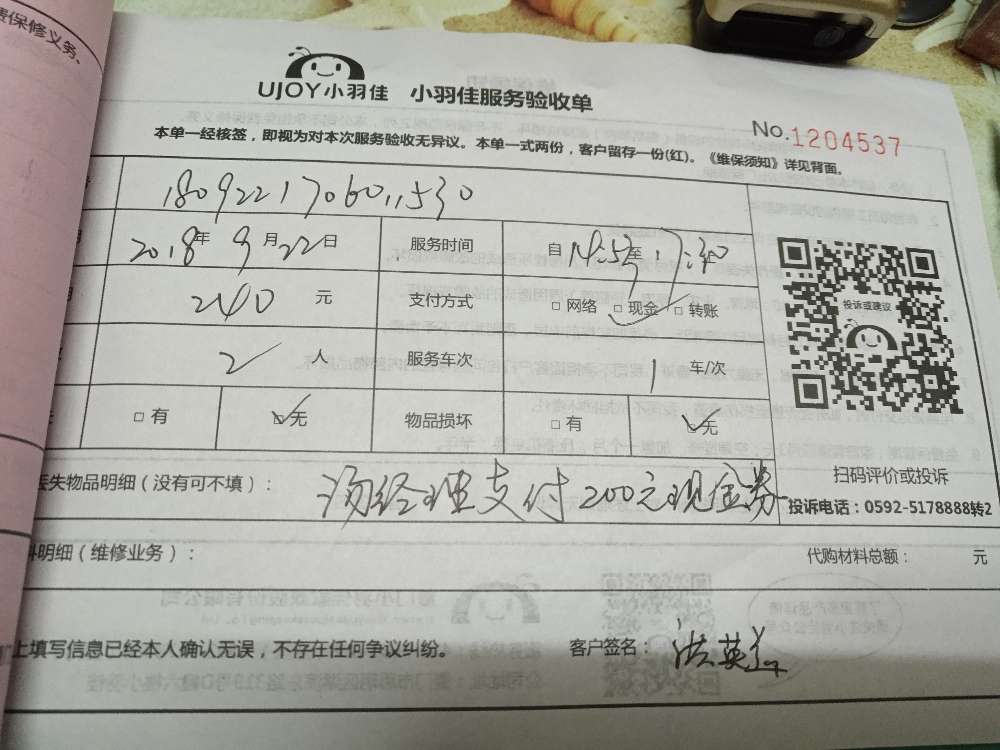 费保修义务、
UJOY小羽佳 小羽佳服务验收单
No.1204537
本单一经核签，即视为对本次服务验收无异议。本单一式两份，客户留存一份(红)。《维保须知》详见背面。
180922170601,530
2018年9月22日 服务时间 自14:53至17:30
240元 支付方式 □网络 □现金 □转账
投诉或建议
2人 服务车次 1车/次
□有 □无 物品损坏 □有 □无
扫码评价或投诉
丢失物品明细（没有可不填）： 汤经理支付200元现金券
投诉电话：0592-5178888转2
料明细（维修业务）： 代购材料总额： 元
上填写信息已经本人确认无误，不存在任何争议纠纷。 客户签名：洪英